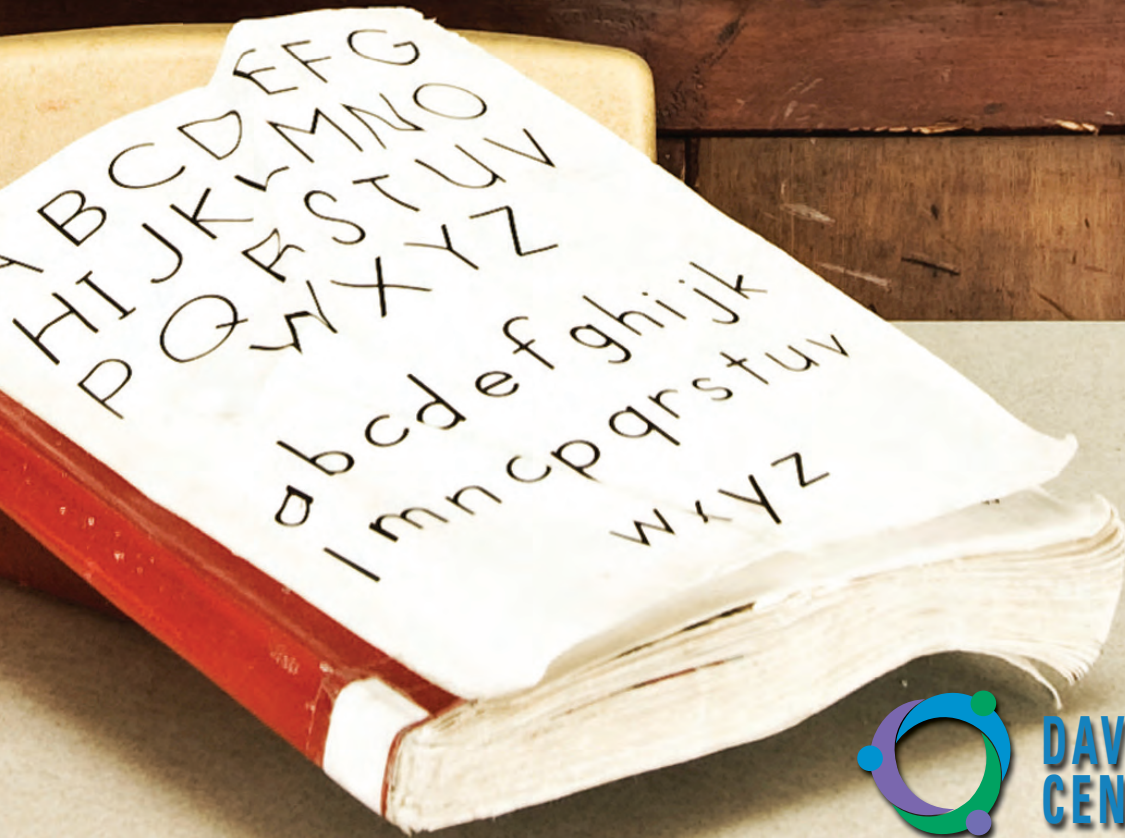 A B C D E F G
H I J K L M N O
P Q R S T U V
W X Y Z
a b c d e f g h i j k
l m n c p q r s t u v
w x y z
DAV
CEN